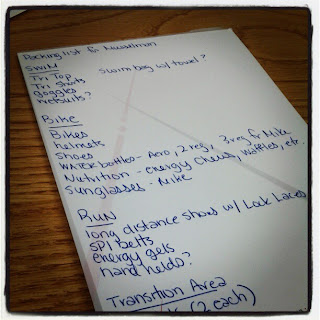 Packing list for
SWIM
Swim bag w/ towel?
Tri Top
Tri Shorts
goggles
wetsuits?
Bike
Bikes
helmets
shoes
WATER bottles - Aero, 2 reg, 3 reg fr Mike
Nutrition - energy chews, Waffles, etc.
Sunglasses - Mike
RUN
long distance shoes w/ Lock Laces
SPI belts
energy gels
hand helds?
Transition Area
(2 each)